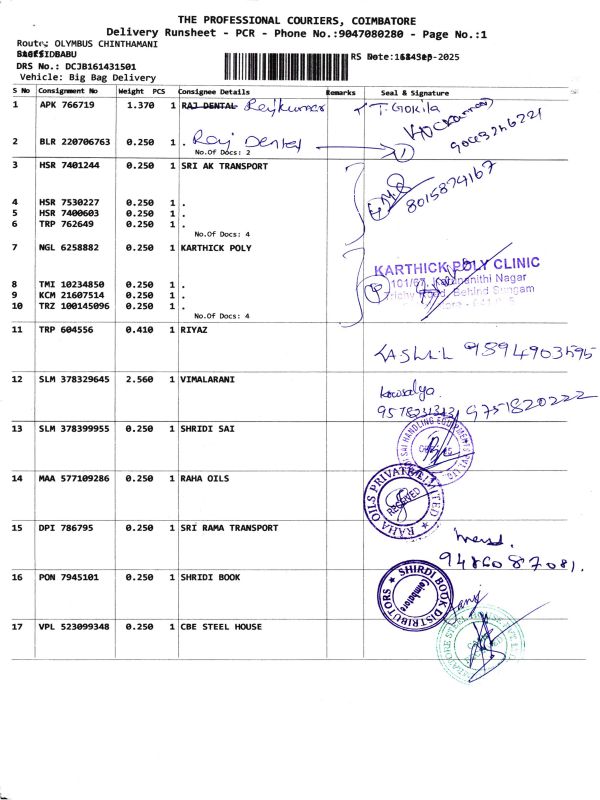 THE PROFESSIONAL COURIERS, COIMBATORE
Delivery Runsheet - PCR - Phone No.:9047080280 - Page No.:1
Route: OLYMBUS CHINTHAMANI
DRS No.: DCJB161431501
Vehicle: Big Bag Delivery
RS Date: -2025
S No Consignment No Weight PCS Consignee Details Remarks Seal & Signature
1 APK 766719 1.370 1 RAJ DENTAL Rajkumar T. Gokila
9003246221
2 BLR 220706763 0.250 1 . Raj Dental
No.Of Docs: 2
3 HSR 7401244 0.250 1 SRI AK TRANSPORT
8015874167
4 HSR 7530227 0.250 1 .
5 HSR 7400603 0.250 1 .
6 TRP 762649 0.250 1 .
No.Of Docs: 4
7 NGL 6258882 0.250 1 KARTHICK POLY
KARTHICK POLY CLINIC
8 TMI 10234850 0.250 1 .
9 KCM 21607514 0.250 1 .
10 TRZ 100145096 0.250 1 .
No.Of Docs: 4
11 TRP 604556 0.410 1 RIYAZ
9894903595
12 SLM 378329645 2.560 1 VIMALARANI
Kowsalya
9751820222
13 SLM 378399955 0.250 1 SHRIDI SAI
14 MAA 577109286 0.250 1 RAHA OILS
RAHA OILS PRIVATE LIMITED
RECEIVED
15 DPI 786795 0.250 1 SRI RAMA TRANSPORT
9486087081.
16 PON 7945101 0.250 1 SHRIDI BOOK
SHIRDI BOOK DISTRIBUTORS
Coimbatore
17 VPL 523099348 0.250 1 CBE STEEL HOUSE